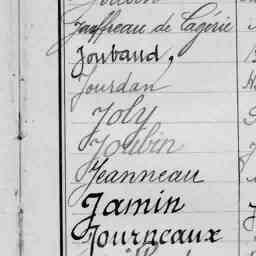 Jauffreau de Lagérie
Joubaud,
Jourdan
Joly
Joubin
Jeanneau
Jamin
Journeaux